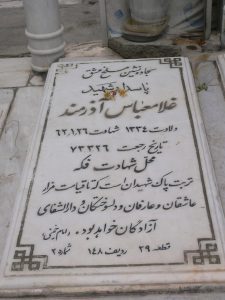 سجاده نشین مسلخ عشق
پاسدار شهید
غلامعباس آذرمند
ولادت ۱۳۳۴ شهادت ۶۲٫۱٫۲۶
تاریخ رجعت ۷۳٫۳٫۲۶
محل شهادت فکه
تربت پاک شهیدان است که تا قیامت مزار
عاشقان و عارفان و دلسوختگان و دارالشفای
آزادگان خواهد بود. (امام خمینی)
قطعه ۲۹ ردیف ۱۴۸ شماره ۲